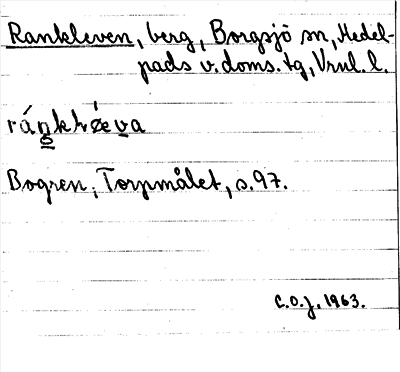 Rankleven, berg, Borgsjö sn, Medel-
pads v. doms. tg, Vnrl. l.
Bogren, Torpmålet, s. 97.
C.O.J. 1963.